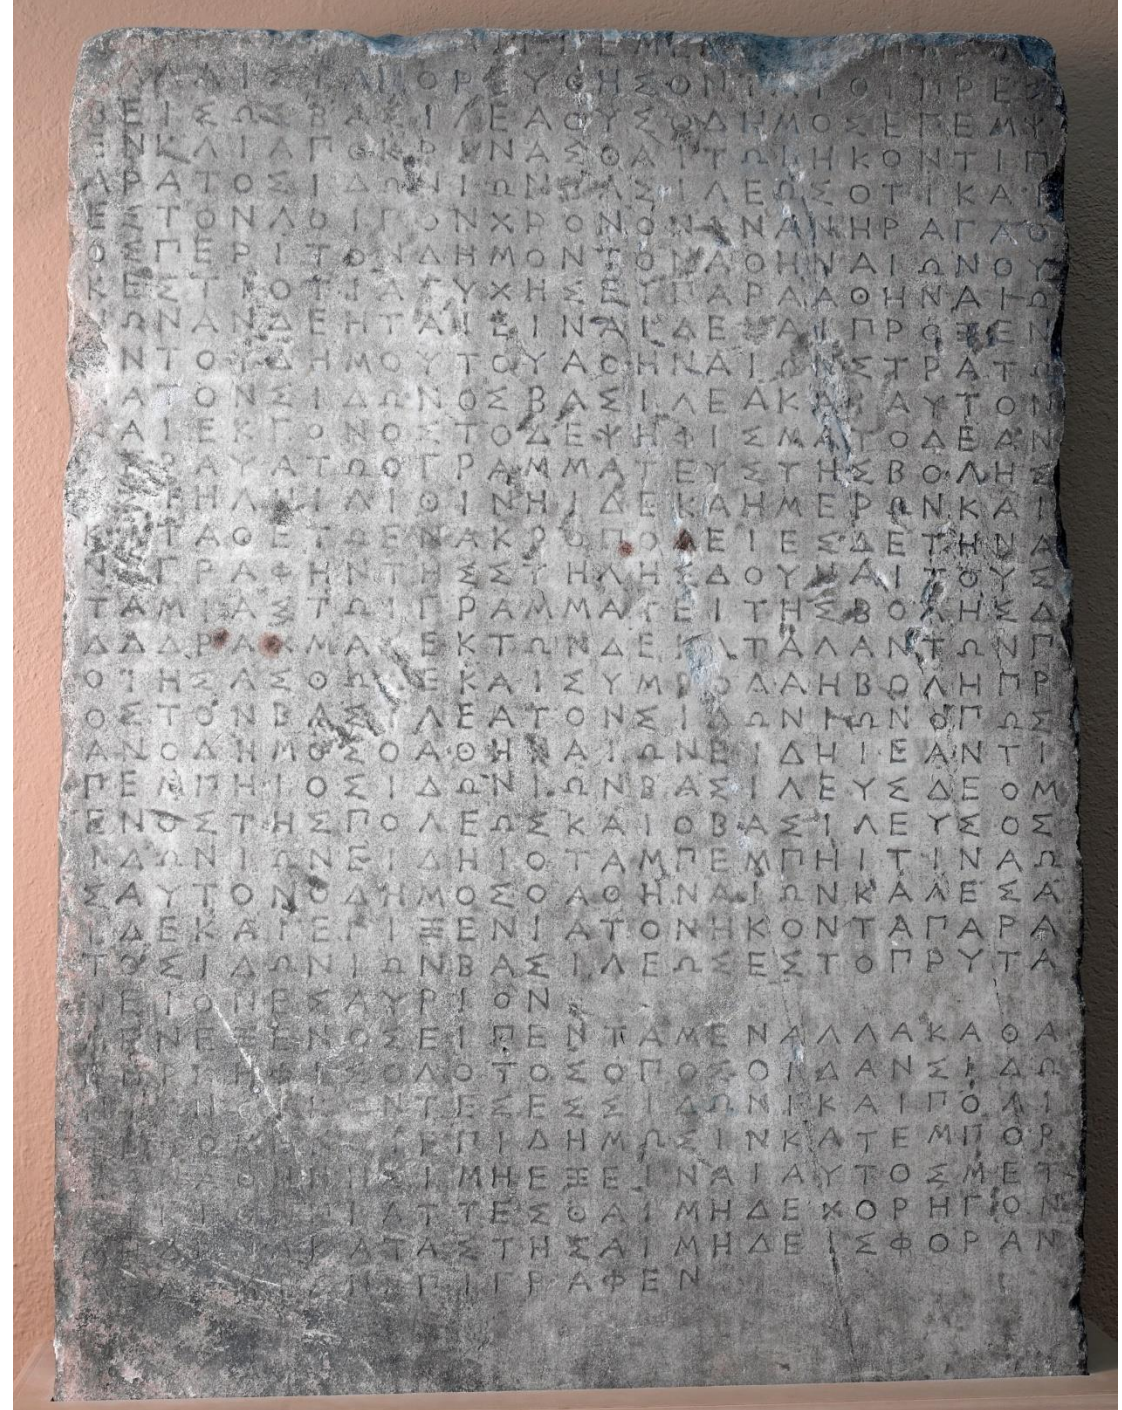 ΠΟΡΕΥΘΗΣΟΝΤΑΙΟΙΠΡΕΣ
ΒΕΙΣΩΣΒΑΣΙΛΕΑΟΥΣΟΔΗΜΟΣΕΠΕΜΨ
ΕΝΚΑΙΑΠΟΚΡΙΝΑΣΘΑΙΤΩΙΗΚΟΝΤΙΠ
ΑΡΑΤΟΣΙΔΩΝΙΩΝΒΑΣΙΛΕΩΣΟΤΙΚΑΙ
ΕΣΤΟΝΛΟΙΠΟΝΧΡΟΝΟΝΩΝΑΝΗΡΑΓΑΘ
ΟΣΠΕΡΙΤΟΝΔΗΜΟΝΤΟΝΑΘΗΝΑΙΩΝΟΥ
ΚΕΣΤΙΟΤΙΑΤΥΧΗΣΕΙΠΑΡΑΑΘΗΝΑΙΩ
ΝΩΝΑΝΔΕΗΤΑΙΕΙΝΑΙΔΕΚΑΙΠΡΟΞΕΝ
ΟΝΤΟΥΔΗΜΟΥΤΟΥΑΘΗΝΑΙΩΝΣΤΡΑΤΩ
ΝΑΤΟΝΣΙΔΩΝΟΣΒΑΣΙΛΕΑΚΑΙΑΥΤΟΝ
ΚΑΙΕΚΓΟΝΟΣΤΟΔΕΨΗΦΙΣΜΑΤΟΔΕΑΝ
ΑΓΡΑΨΑΤΩΟΓΡΑΜΜΑΤΕΥΣΤΗΣΒΟΛΗΣ
ΕΣΤΗΛΗΙΛΙΘΙΝΗΙΔΕΚΑΗΜΕΡΩΝΚΑΙ
ΚΑΤΑΘΕΤΩΕΝΑΚΡΟΠΟΛΕΙΕΣΔΕΤΗΝΑ
ΝΑΓΡΑΦΗΝΤΗΣΣΤΗΛΗΣΔΟΥΝΑΙΤΟΥΣ
ΤΑΜΙΑΣΤΩΙΓΡΑΜΜΑΤΕΙΤΗΣΒΟΛΗΣΔ
ΔΔΔΡΑΧΜΑΣΕΚΤΩΝΔΕΚΑΤΑΛΑΝΤΩΝΠ
ΟΙΗΣΑΣΘΩΔΕΚΑΙΣΥΜΒΟΛΑΗΒΟΛΗΠΡ
ΟΣΤΟΝΒΑΣΙΛΕΑΤΟΝΣΙΔΩΝΙΩΝΟΠΩΣ
ΑΝΟΔΗΜΟΣΟΑΘΗΝΑΙΩΝΕΙΔΗΙΕΑΝΤΙ
ΠΕΜΠΗΙΟΣΙΔΩΝΙΩΝΒΑΣΙΛΕΥΣΔΕΟΜ
ΕΝΟΣΤΗΣΠΟΛΕΩΣΚΑΙΟΒΑΣΙΛΕΥΣΟΣ
ΙΔΩΝΙΩΝΕΙΔΗΙΟΤΑΜΠΕΜΠΗΙΤΙΝΑΩ
ΣΑΥΤΟΝΟΔΗΜΟΣΟΑΘΗΝΑΙΩΝΚΑΛΕΣΑ
ΙΔΕΚΑΙΕΠΙΞΕΝΙΑΤΟΝΗΚΟΝΤΑΠΑΡΑ
ΤΟΣΙΔΩΝΙΩΝΒΑΣΙΛΕΩΣΕΣΤΟΠΡΥΤΑ
ΝΕΙΟΝΕΣΑΥΡΙΟΝ
ΜΕΝΕΞΕΝΟΣΕΙΠΕΝΤΑΜΕΝΑΛΛΑΚΑΘΑ
ΠΕΡΚΗΦΙΣΟΔΟΤΟΣΟΠΟΣΟΙΔΑΝΣΙΔΩ
ΝΙΩΝΟΙΚΟΝΤΕΣΕΣΣΙΔΩΝΙΚΑΙΠΟΛΙ
ΕΠΙΔΗΜΩΣΙΝΚΑΤΕΜΠΟΡ
ΙΑΝΑΘΗΝΗΣΙΜΗΕΞΕΙΝΑΙΑΥΤΟΣΜΕΤ
ΠΡΑΤΤΕΣΘΑΙΜΗΔΕΧΟΡΗΓΟΝ
ΜΗΔΕΝΑΚΑΤΑΣΤΗΣΑΙΜΗΔΕΙΣΦΟΡΑΝ
ΕΠΙΓΡΑΦΕΝ